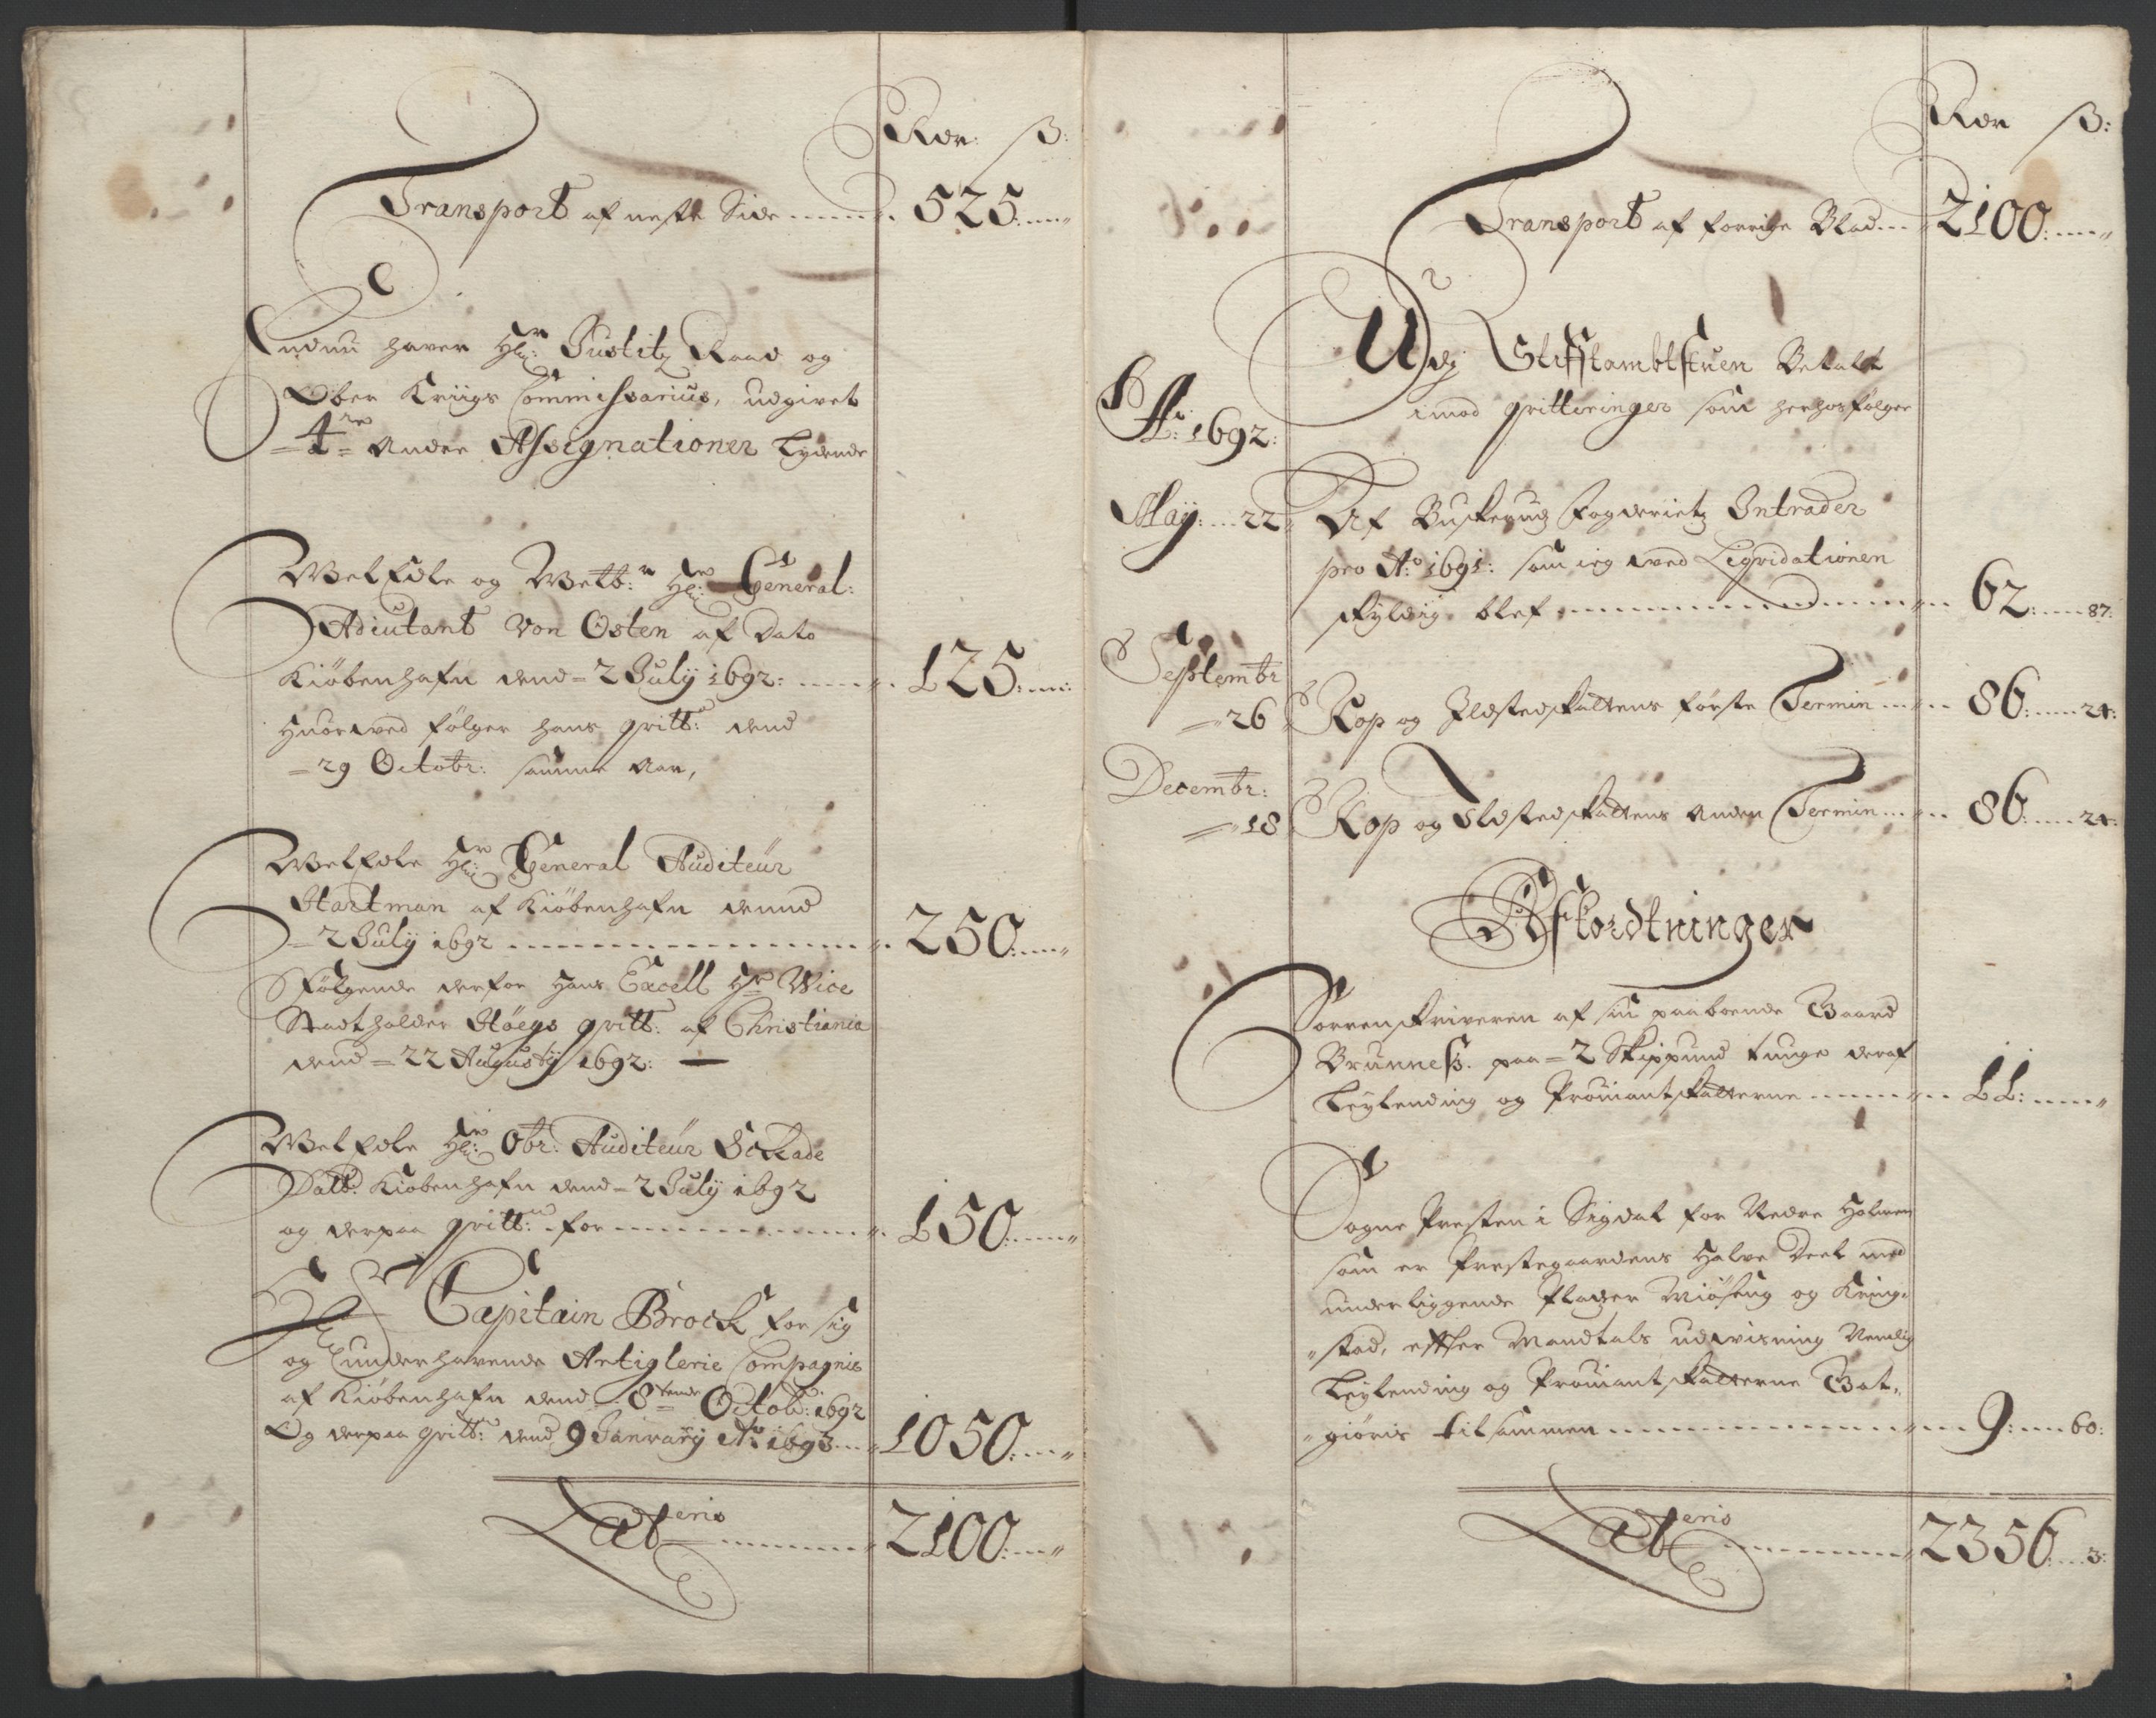 Rdr: ß:
Transport af neste Side ...... 525: ...
Endnu haver Hr: Justitz Raad og
Ober Kriigs Commissarius, udgivet
= 4re Andre Assignationer Lydende
WelEdle og Welb:r Hr: General:
Adiutant von Osten af Dato
Kiöbenhafn dend = 2 July 1692: ...... 125: ...
Huorved fölger hans qvitt: dend
= 29 Octobr: samme Aar,
WelEdle Hr: General Auditeür
Hartman af Kiöbenhafn dend
= 2 July 1692 ...... 250: ...
Fölgende derfor Hans Excell Hr Wice
Stadtholder Höegs qvitt: af Christiania
dend = 22 Augusty 1692: —
WelEdle Hr: Obr: Auditeür
Datt: Kiöbenhafn dend = 2 July 1692
og derpaa qvitt: for ...... 150: ...
Hr Capitain Brock for sig
og underhavende Artiglerie Compagnie
af Kiöbenhafn dend 8tende Octob: 1692
Og derpaa qvitt: dend 9 January Ao 1693 ... 1050: ...
Lateris ...... 2100: ...
Rdr ß:
Transport af forrige Blad ... 2100: ...
Udj Stifftambtstuen Betalt
imod qvitteringer som herhos fölger
Ao: 1692:
May: ... 22 Af Buskeruds Fogderietz Intrader
pro Ao: 1691: som ieg ved Liqvidationen
skyldig blef ...... 62: ... 87:
Septembr
= 26 Kop og Ildstedskattens förste Termin ... 86: ... 24:
Decembr:
= 18 Kop og Ildstedskattens Anden Termin ... 86: ... 24:
Afkordtninger
Sorrenskriveren af sin paaboende Gaard
Brunneß. paa = 2 Skippund tunge deraf
Leylending og Prouiantskatterne ...... 11: ...
Sogne Presten i Sigdal for Nedre Holmen
som er Prestegaardens Halve Deel med
underliggende Pladzer Miöseng og Kring-
stad, effter Mandtals udvisning Nemlig
Leylending og Prouiant skatterne Bet,
giöris tilsammen ...... 9: ... 60:
Lateris ...... 2356: ... 3: